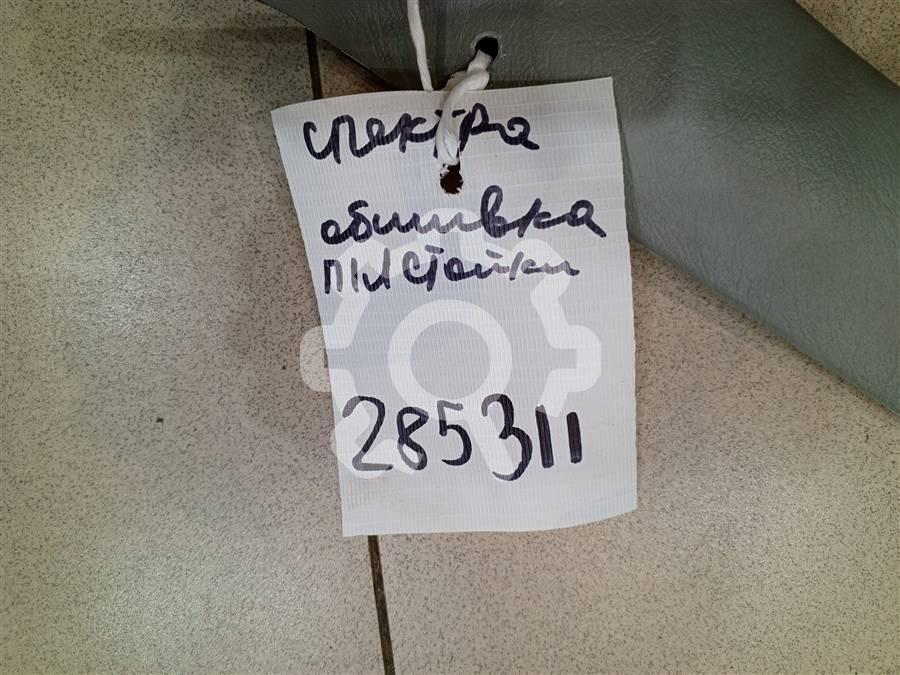 спектра
обшивка
п п л стойки
285311